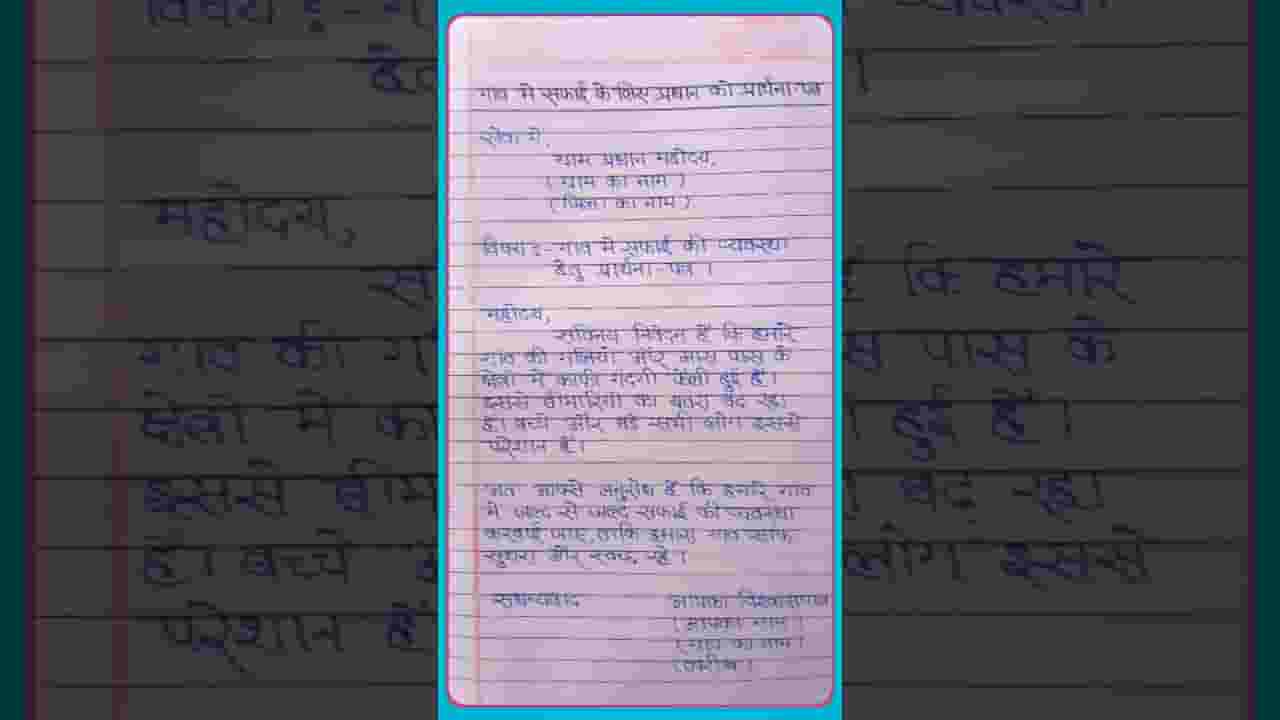 गाव मे सफाई के लिए प्रधान को प्रार्थना-पत्र
सेवा मे,
ग्राम प्रधान महोदय,
( ग्राम का नाम )
(जिला का नाम)
विषय :- गाव मे सफाई की व्यवस्था
हेतु प्रार्थना-पत्र ।
महोदय,
सविनय निवेदन है कि हमारे
गाव की गलियों और आस पास के
क्षेत्रो मे काफी गंदगी फैली हुई है।
इससे बीमारियो का खतरा बढ रहा
है। बच्चे और बडे सभी लोग इससे
परेशान हैं।
अतः आपसे अनुरोध है कि हमारे गाव
मे जल्द से जल्द सफाई की व्यवस्था
करवाई जाए ताकि हमारा गाव साफ
सुथरा और स्वच्छ रहे ।
सधन्यवाद
आपका विश्वासपात्र
(आपका नाम)
(गाव का नाम)
(तारीख)